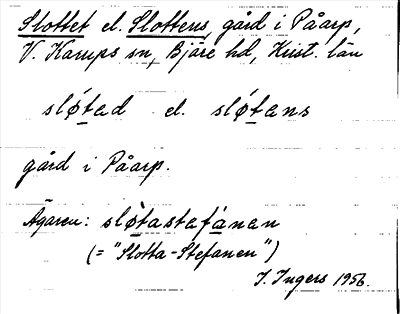 Slottet el. Slottens, gård i Påarp,
V. Karups sn, Bjäre hd, Krist. län
sløtad el. sløtans
gård i Påarp.
Ägaren: sløtastefanen
(= "Slotta-Stefanen")
I. Ingers 1956.